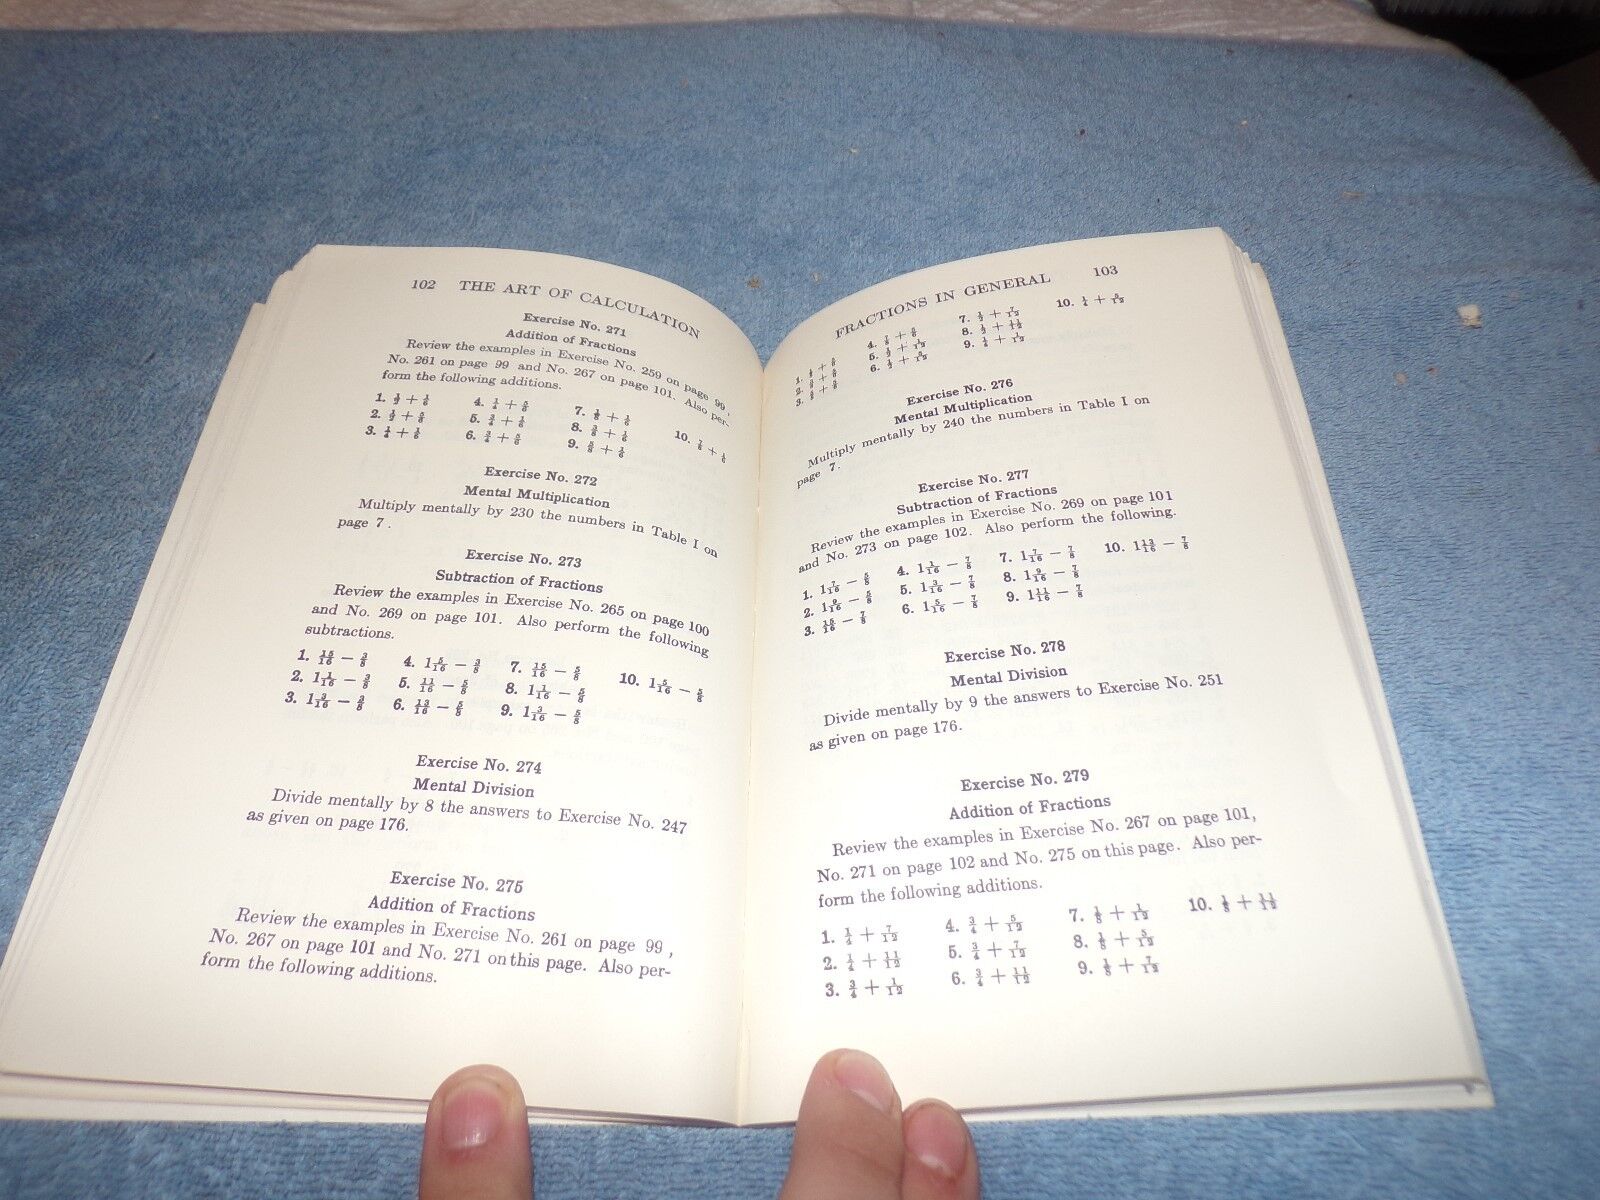 102 THE ART OF CALCULATION
Exercise No. 271
Addition of Fractions
Review the examples in Exercise No. 259 on page 99,
No. 261 on page 99 and No. 267 on page 101. Also per-
form the following additions.
1. 1/2 + 1/6 4. 1/4 + 5/6 7. 1/8 + 1/6
2. 1/2 + 5/6 5. 3/4 + 1/6 8. 3/8 + 1/6 10. 7/8 + 1/6
3. 1/4 + 1/6 6. 3/4 + 5/6 9. 5/8 + 1/6
Exercise No. 272
Mental Multiplication
Multiply mentally by 230 the numbers in Table I on
page 7.
Exercise No. 273
Subtraction of Fractions
Review the examples in Exercise No. 265 on page 100
and No. 269 on page 101. Also perform the following
subtractions.
1. 15/16 – 3/8 4. 1 5/16 – 3/8 7. 15/16 – 5/8 10. 1 5/16 – 5/8
2. 1 1/16 – 3/8 5. 11/16 – 5/8 8. 1 1/16 – 5/8
3. 1 3/16 – 3/8 6. 13/16 – 5/8 9. 1 3/16 – 5/8
Exercise No. 274
Mental Division
Divide mentally by 8 the answers to Exercise No. 247
as given on page 176.
Exercise No. 275
Addition of Fractions
Review the examples in Exercise No. 261 on page 99,
No. 267 on page 101 and No. 271 on this page. Also per-
form the following additions.
FRACTIONS IN GENERAL 103
1. 4. 7. 10.
2. 5. 8.
3. 6. 9.
Exercise No. 276
Mental Multiplication
Multiply mentally by 240 the numbers in Table I on
page 7.
Exercise No. 277
Subtraction of Fractions
Review the examples in Exercise No. 269 on page 101
and No. 273 on page 102. Also perform the following.
1. 1 7/16 – 5/8 4. 1 1/16 – 7/8 7. 1 7/16 – 7/8 10. 1 13/16 – 7/8
2. 1 9/16 – 5/8 5. 1 3/16 – 7/8 8. 1 9/16 – 7/8
3. 15/16 – 7/8 6. 1 5/16 – 7/8 9. 1 11/16 – 7/8
Exercise No. 278
Mental Division
Divide mentally by 9 the answers to Exercise No. 251
as given on page 176.
Exercise No. 279
Addition of Fractions
Review the examples in Exercise No. 267 on page 101,
No. 271 on page 102 and No. 275 on this page. Also per-
form the following additions.
1. 1/4 + 7/12 4. 3/4 + 5/12 7. 1/8 + 1/12 10. 1/8 + 11/12
2. 1/4 + 11/12 5. 3/4 + 7/12 8. 1/8 + 5/12
3. 3/4 + 1/12 6. 3/4 + 11/12 9. 1/8 + 7/12